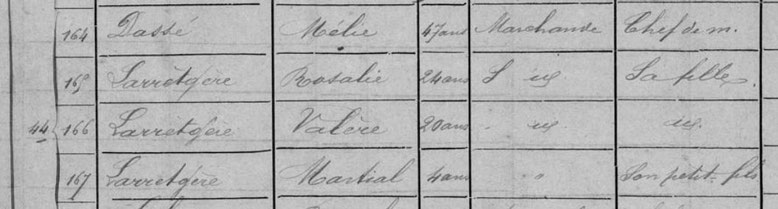 164 Dassé Mélie 47 ans Marchande Chef de m.
165 Larretgère Rosalie 24 ans S id Sa fille
44 166 Larretgère Valère 20 ans id id
167 Larretgère Martial 4 ans " Son petit-fils